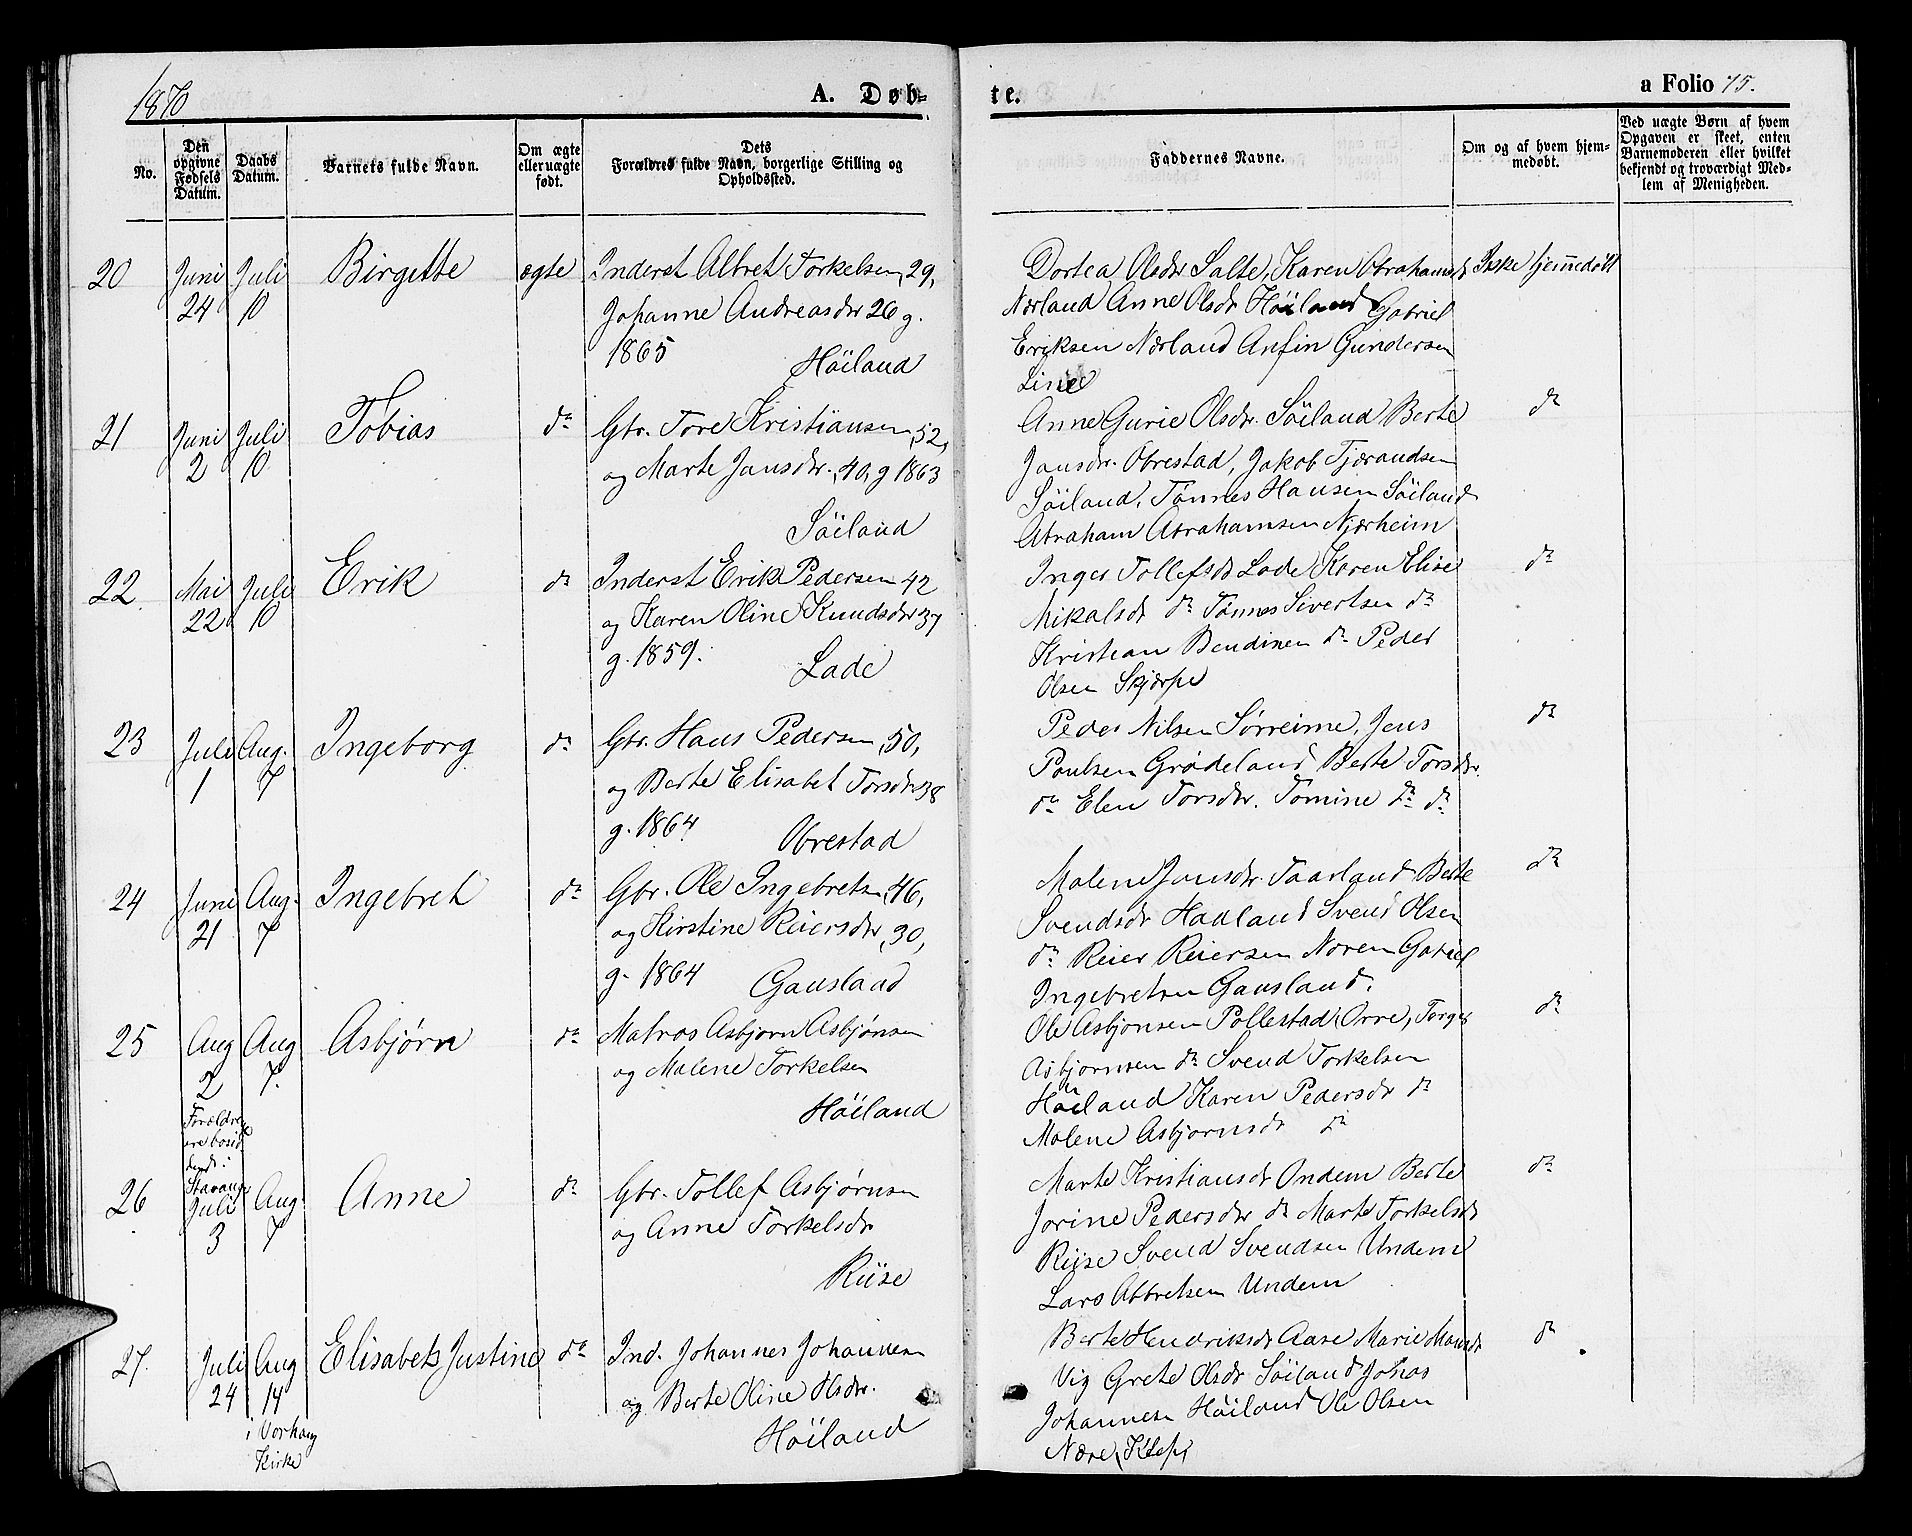 1870
A. Døb-
te.
a Folio 75.
No.
Den opgivne Fødsels Datum.
Daabs Datum.
Barnets fulde Navn.
Om ægte eller uægte født.
Dets Forældres fulde Navn, borgerlige Stilling og Opholdssted.
Faddernes Navne.
Om og af hvem hjemmedøbt.
Ved uægte Børn af hvem Opgaven er skeet, enten Barnemoderen eller hvilket bekjendt og troværdigt Medlem af Menigheden.
20 Juni 24 Juli 10 Birgitte ægte
Inderst Albret Torkelsen, 29,
Johanne Andreasdr 26 g.
1865 Höiland
Dortea Olsdr Salte, Karen Abrahamsd
Nærland Anne Olsdr Höiland Gabriel
Eriksen Nærland Anfin Gundersen
Line
Ikke hjemedöbt
21 Juni 2 Juli 10 Tobias do
Gbr. Tore Kristiansen, 52,
og Marte Jansdr., 40, g 1863
Söiland
Anne Gurie Olsdr. Söiland Berte
Jansdr. Obrestad, Jakob Tjærandsen
Söiland, Tønnes Hansen Söiland
Abraham Abrahamsen Njærheim
do
22 Mai 22 Juli 10 Erik do
Inderst Erik Pedersen 42
og Karen Oline Knudsdr 37
g. 1859. Lade
Inger Tollefsd Lade Karen Elise
Mikalsd do Tønnes Sivertsen do
Kristian Bendixen do Peder
Olsen Skjærpe
do
23 Juli 1 Aug. 7 Ingeborg do
Gbr. Hans Pedersen, 50,
og Berte Elisabet Torsdr 38
g. 1864 Obrestad
Peder Nilsen Sørreime, Jens
Poulsen Grødeland Berte Torsdr.
do Elen Torsdr. Tomine do do
do
24 Juni 21 Aug. 7 Ingebret do
Gbr. Ole Ingebretsn, 46,
og Kirstine Reiersdr, 30,
g. 1864 Gausland
Malene Jonsdr. Taarland Berte
Svendsdr Hadland Svend Olsen
do Reier Reiersen Noren Gabriel
Ingebretsen Gausland.
do
25 Aug 2 Aug 7. Asbjørn do
Forældre
ere bosid
dende i
Stavang
Matros Asbjørn Asbjønsen
og Malene Torkelsen
Höiland
Ole Asbjonsen Pollestad, Orre, Torger
Asbjornsen do Svend Torkelsen
Höiland Karen Pedersdr do
Malene Asbjornsdr do
do
26 Juli 3 Aug. 7 Anne do
Gbr. Tollef Asbjørnsen
og Anne Torkelsdr
Riise
Marte Kristiansdr Ondem Berte
Jorine Pedersdr do Marte Torkelsdr
Riise Svend Svendsen Undem
Lars Albretsen Undem
do
27. Juli 24 Aug 14 Elisabet Justine do
i Varhaug
Kirke
Ind. Johannes Johannesen
og Berte Oline Olsdr.
Höiland
Berte Hendriksdr Aase Marie Monsdr
Vig Grete Olsdr Söiland Johas
Johannesen Höiland Ole Olsen
Nære, Klep,
do